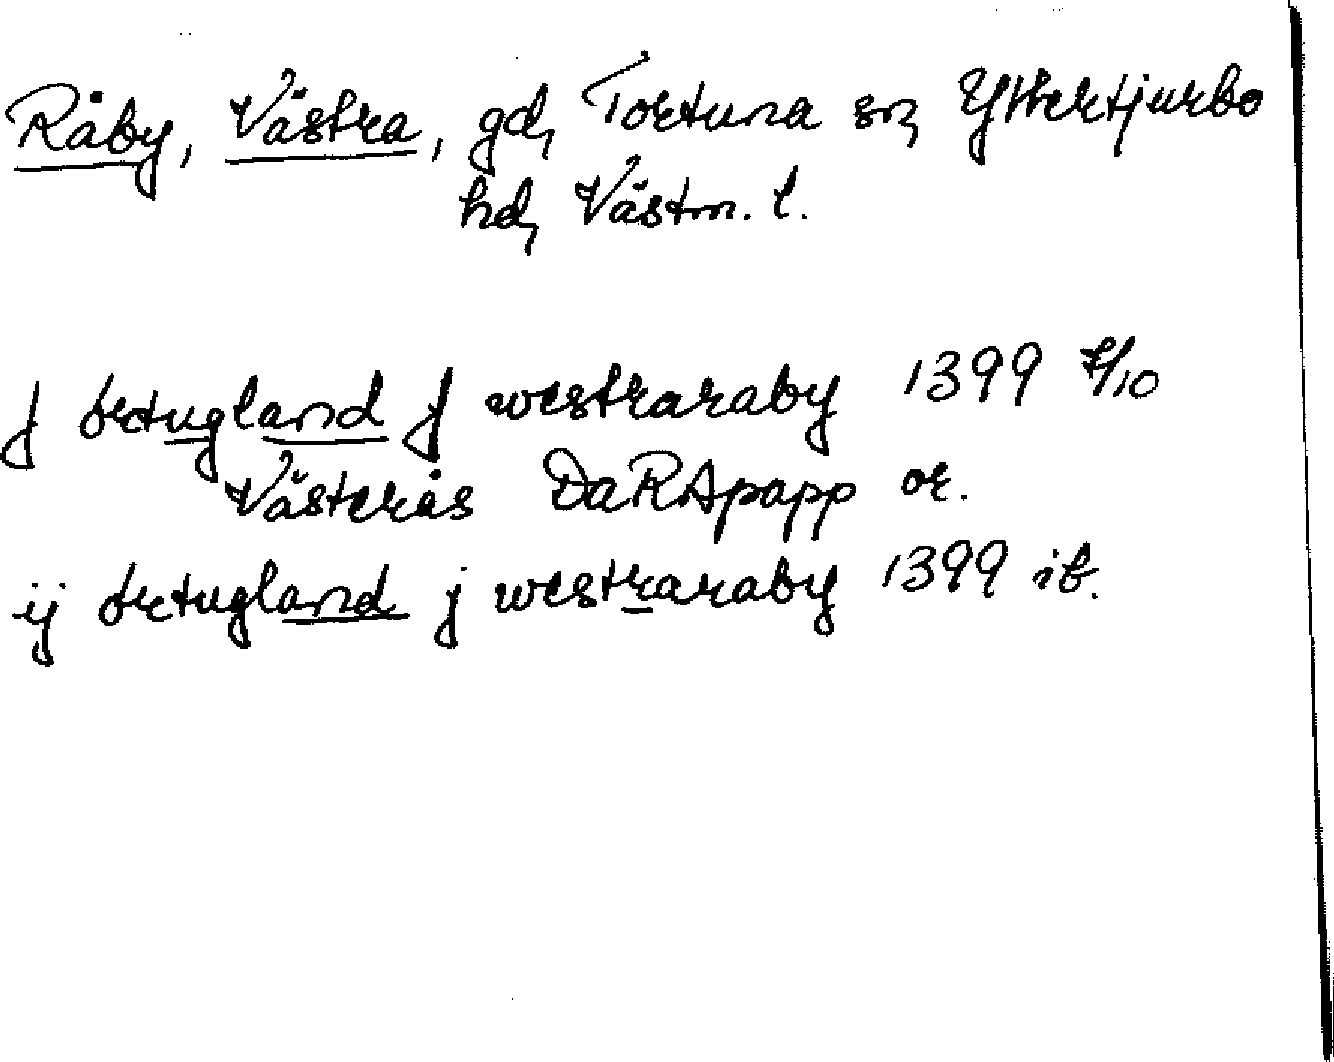 Råby, Västra, gd, Tortuna sn, Yttertjurbo
hd, Västm. l.
j ørtugland j westraraby 1399 7/10
Västerås DaRApapp or.
ij ørtugland j westraraby 1399 ib.